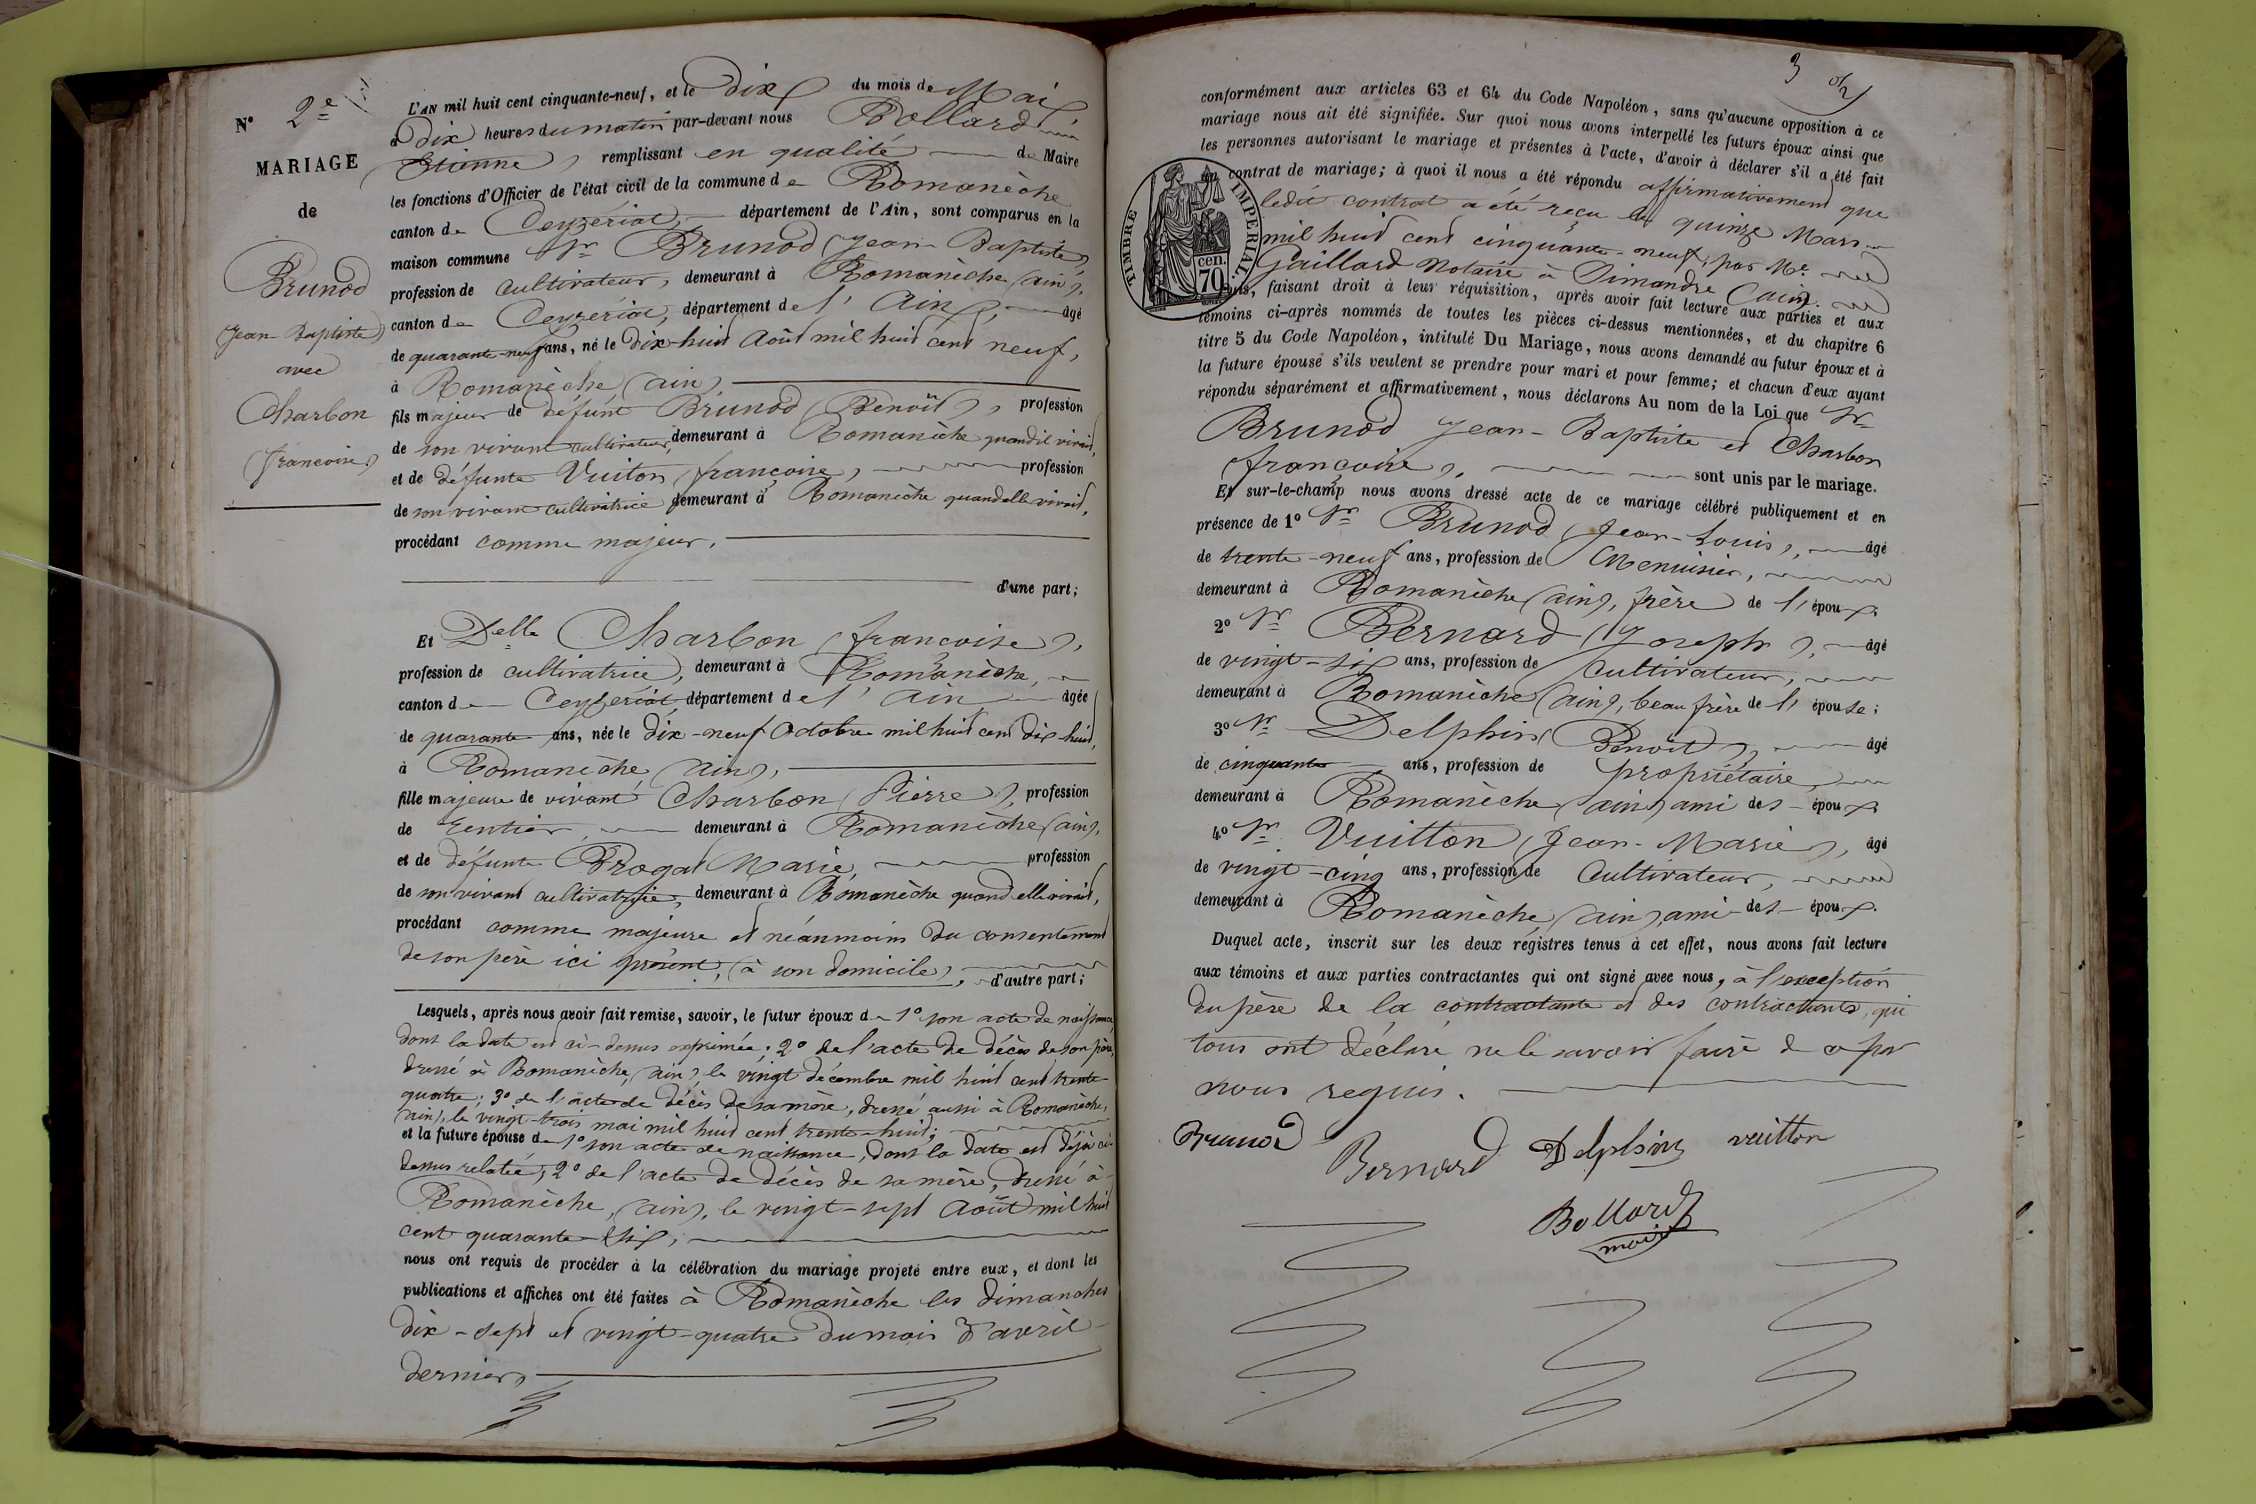 N° 2e
MARIAGE
de
Brunod
(Jean-Baptiste)
avec
Charbon
(francoise)
L'AN mil huit cent cinquante-neuf, et le Dix du mois de Mai
à Dix heures du matin par-devant nous Bollard
Etienne, remplissant en qualité de Maire
les fonctions d'Officier de l'état civil de la commune de Romanèche
canton de Ceyzériat, département de l'Ain, sont comparus en la
maison commune Sr Brunod (Jean-Baptiste),
profession de cultivateur, demeurant à Romanèche (ain),
canton de Ceyzériat, département de l'Ain, âgé
de quarante-neuf ans, né le Dix-huit Août mil huit cent neuf,
à Romanèche (ain),
fils majeur de défunt Brunod (Benoît), profession
de son vivant cultivateur, demeurant à Romanèche quand il vivait,
et de défunte Vuiton (françoise), profession
de son vivant cultivatrice demeurant à Romanèche quand elle vivait,
procédant comme majeur,
d'une part;
Et Delle Charbon (francoise),
profession de cultivatrice, demeurant à Romanèche,
canton de Ceyzériat, département de l'Ain âgée
de quarante ans, née le dix-neuf Octobre mil huit cent dix-huit,
à Romanèche (ain),
fille majeure de vivant Charbon (Pierre), profession
de rentier, demeurant à Romanèche (ain),
et de défunte Brogat Marie, profession
de son vivant cultivatrice, demeurant à Romanèche quand elle vivait,
procédant comme majeure et néanmoins du consentement
de son père ici présent, (à son domicile), d'autre part;
Lesquels, après nous avoir fait remise, savoir, le futur époux de 1° son acte de naissance
dont la date est ci-dessus exprimée; 2° de l'acte de décès de son père,
dressé à Romanèche, (ain), le vingt décembre mil huit cent trente-
quatre; 3° de l'acte de décès de sa mère, dressé aussi à Romanèche,
(ain), le vingt-trois mai mil huit cent trente-huit;
et la future épouse de 1° son acte de naissance, dont la date est déjà ci-
dessus relatée; 2° de l'acte de décès de sa mère, dressé à
Romanèche, (ain), le vingt-sept Août mil huit
cent quarante-six;
nous ont requis de procéder à la célébration du mariage projeté entre eux, et dont les
publications et affiches ont été faites à Romanèche les dimanches
dix-sept et vingt-quatre du mois d'avril
dernier,
3
conformément aux articles 63 et 64 du Code Napoléon, sans qu'aucune opposition à ce
mariage nous ait été signifiée. Sur quoi nous avons interpellé les futurs époux ainsi que
les personnes autorisant le mariage et présentes à l'acte, d'avoir à déclarer s'il a été fait
un contrat de mariage; à quoi il nous a été répondu affirmativement que
ledit contrat a été reçu le quinze Mars
mil huit cent cinquante-neuf, par Me
Gaillard Notaire à Simandre (ain).
TIMBRE IMPÉRIAL
70 cen.
Puis, faisant droit à leur réquisition, après avoir fait lecture aux parties et aux
témoins ci-après nommés de toutes les pièces ci-dessus mentionnées, et du chapitre 6
titre 5 du Code Napoléon, intitulé Du Mariage, nous avons demandé au futur époux et à
la future épouse s'ils veulent se prendre pour mari et pour femme; et chacun d'eux ayant
répondu séparément et affirmativement, nous déclarons Au nom de la Loi que Sr
Brunod Jean-Baptiste et Charbon
(françoise), sont unis par le mariage.
Et sur-le-champ nous avons dressé acte de ce mariage célébré publiquement et en
présence de 1° Sr Brunod (Jean-Louis), âgé
de trente-neuf ans, profession de Menuisier,
demeurant à Romanèche (ain), frère de l'époux.
2° Sr Bernard (Joseph), âgé
de vingt-six ans, profession de cultivateur,
demeurant à Romanèche (ain), beau frère de l'épouse;
3° Sr Delphin (Benoît), âgé
de cinquante ans, profession de propriétaire,
demeurant à Romanèche (ain) ami des époux
4° Sr Vuitton (Jean-Marie), âgé
de vingt-cinq ans, profession de Cultivateur,
demeurant à Romanèche, (ain), ami des époux.
Duquel acte, inscrit sur les deux régistres tenus à cet effet, nous avons fait lecture
aux témoins et aux parties contractantes qui ont signé avec nous, à l'exception
du père de la contractante et des contractants, qui
tous ont déclaré ne le savoir faire de ce par
nous requis.
Brunod Bernard Delphin vuitton
Bollard
maire